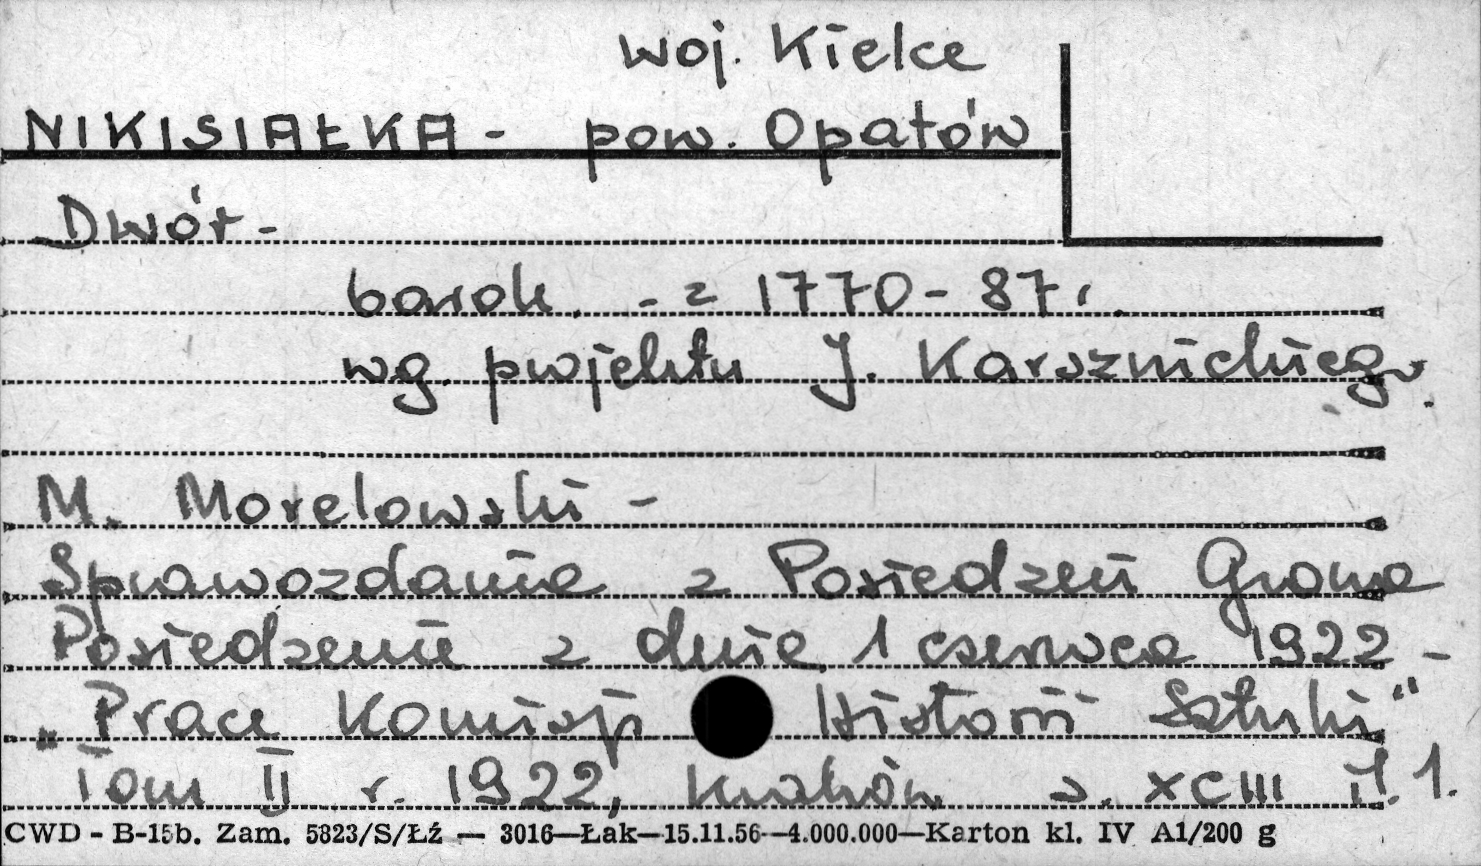 woj. Kielce
NIKISIAŁKA - pow. Opatów
Dwór -
barok. - z 1770 - 87 r.
wg. projektu J. Karsznickiego.
M. Morelowski -
Sprawozdania z Posiedzeń Grona
Posiedzenie z dnia 1 czerwca 1922 -
„Prace Komisji Historii Sztuki"
Tom II r. 1922, Kraków s. XCIII il. 1.
CWD - B-15b. Zam. 5823/S/Łź — 3016—Łak—15.11.56—4.000.000—Karton kl. IV A1/200 g